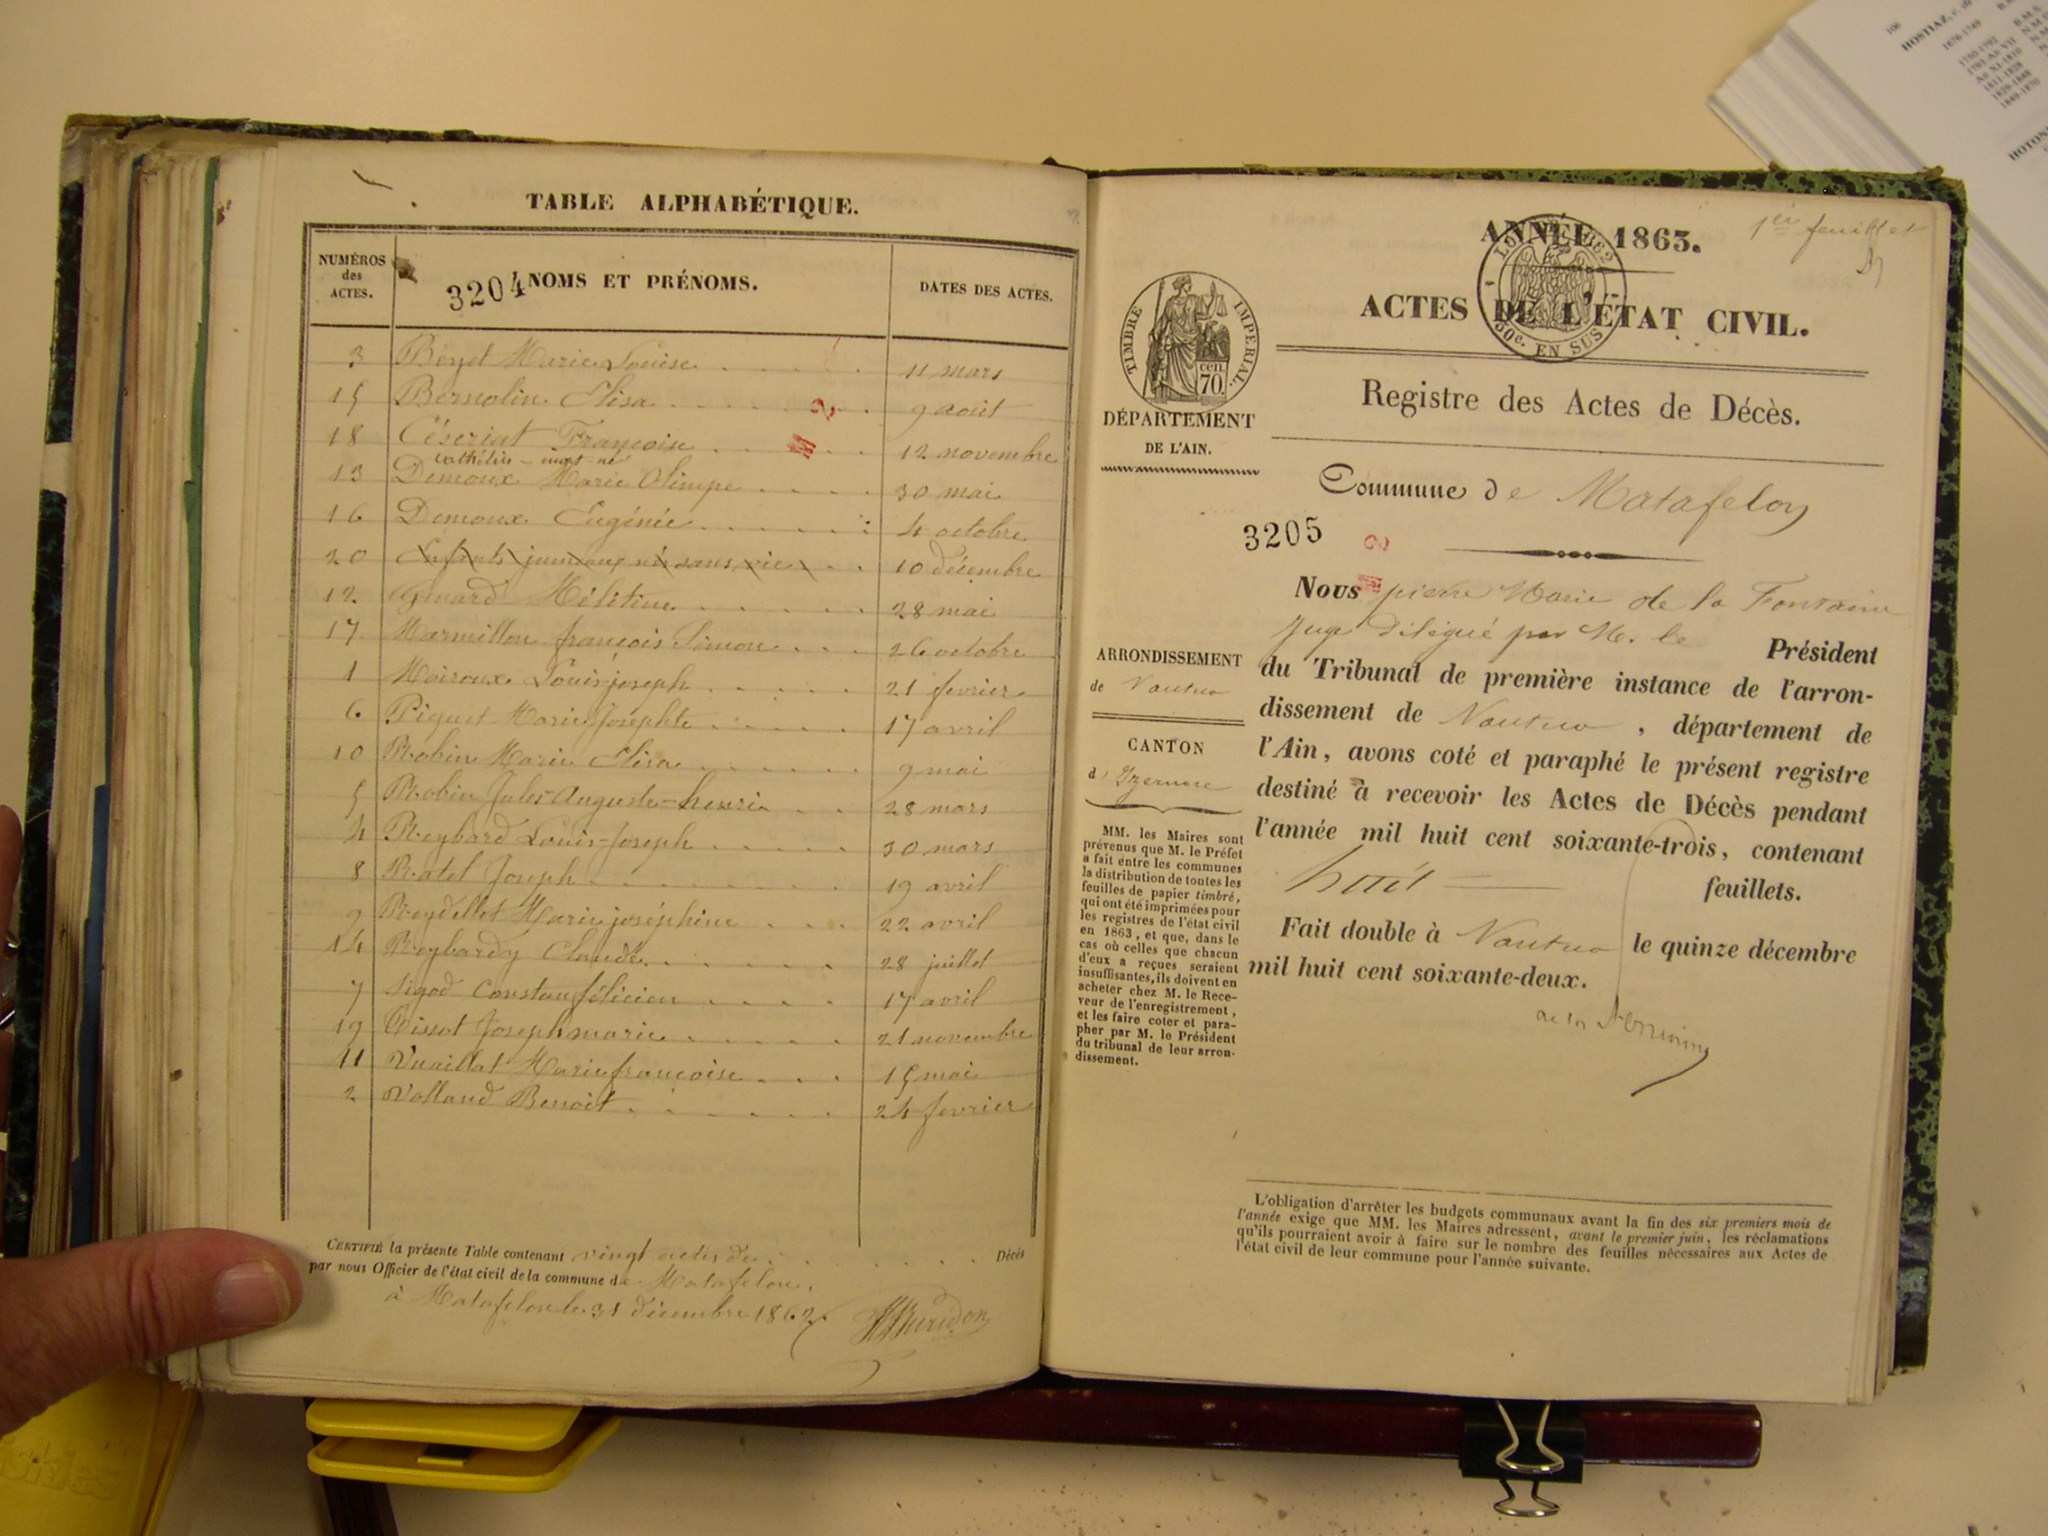 TABLE ALPHABÉTIQUE.
NUMÉROS des ACTES.
3204 NOMS ET PRÉNOMS.
DATES DES ACTES.
3 Béyet Marie Louise 11 mars
15 Bernolin Elisa 9 août
18 Céseriat Françoise 12 novembre
13 Demoux Marie Olimpe 30 mai
16 Demoux Eugénie 4 octobre
20 Enfants jumeaux nés sans vie 10 décembre
12 Genard 28 mai
17 Marmillon françois Simon 26 octobre
1 Moiroux Louis joseph 21 fevrier
6 Piquet Marie Josephte 17 avril
10 Robin Marie Elisa 9 mai
5 Robin Jules Auguste-henri 28 mars
4 Reybard Louis-Joseph 30 mars
8 Ratel Joseph 19 avril
9 Reydellet Marie joséphine 22 avril
14 Reybardy Claude 28 juillet
7 Sigod Constan félicien 17 avril
19 Tissot Joseph marie 21 novembre
11 Vuaillat Marie françoise 15 mai
2 Volland Benoit 24 fevrier
CERTIFIÉ la présente Table contenant vingt actes de Décès
par nous Officier de l'état civil de la commune de Matafelon.
à Matafelon le 31 décembre 1862
1er feuillet
ANNÉE 1863.
ACTES DE L'ÉTAT CIVIL.
30c. EN SUS
TIMBRE IMPÉRIAL.
cen. 70
DÉPARTEMENT
DE L'AIN.
Registre des Actes de Décès.
Commune de Matafelon
3205
Nous pierre Marie de la Fontaine
Juge délégué par M. le Président
du Tribunal de première instance de l'arron-
dissement de Nantua, département de
l'Ain, avons coté et paraphé le présent registre
destiné à recevoir les Actes de Décès pendant
l'année mil huit cent soixante-trois, contenant
huit feuillets.
Fait double à Nantua le quinze décembre
mil huit cent soixante-deux.
ARRONDISSEMENT
de Nantua
CANTON
d'Izernore
MM. les Maires sont
prévenus que M. le Préfet
a fait entre les communes
la distribution de toutes les
feuilles de papier timbré,
qui ont été imprimées pour
les registres de l'état civil
en 1863, et que, dans le
cas où celles que chacun
d'eux a reçues seraient
insuffisantes, ils doivent en
acheter chez M. le Rece-
veur de l'enregistrement,
et les faire coter et para-
pher par M. le Président
du tribunal de leur arron-
dissement.
L'obligation d'arrêter les budgets communaux avant la fin des six premiers mois de
l'année exige que MM. les Maires adressent, avant le premier juin, les réclamations
qu'ils pourraient avoir à faire sur le nombre des feuilles nécessaires aux Actes de
l'état civil de leur commune pour l'année suivante.
106
HOSTIAZ,
1876-1749
1750-1792
1793-An VII
An XI-1810
1811-1828
1829-1848
1849-1870